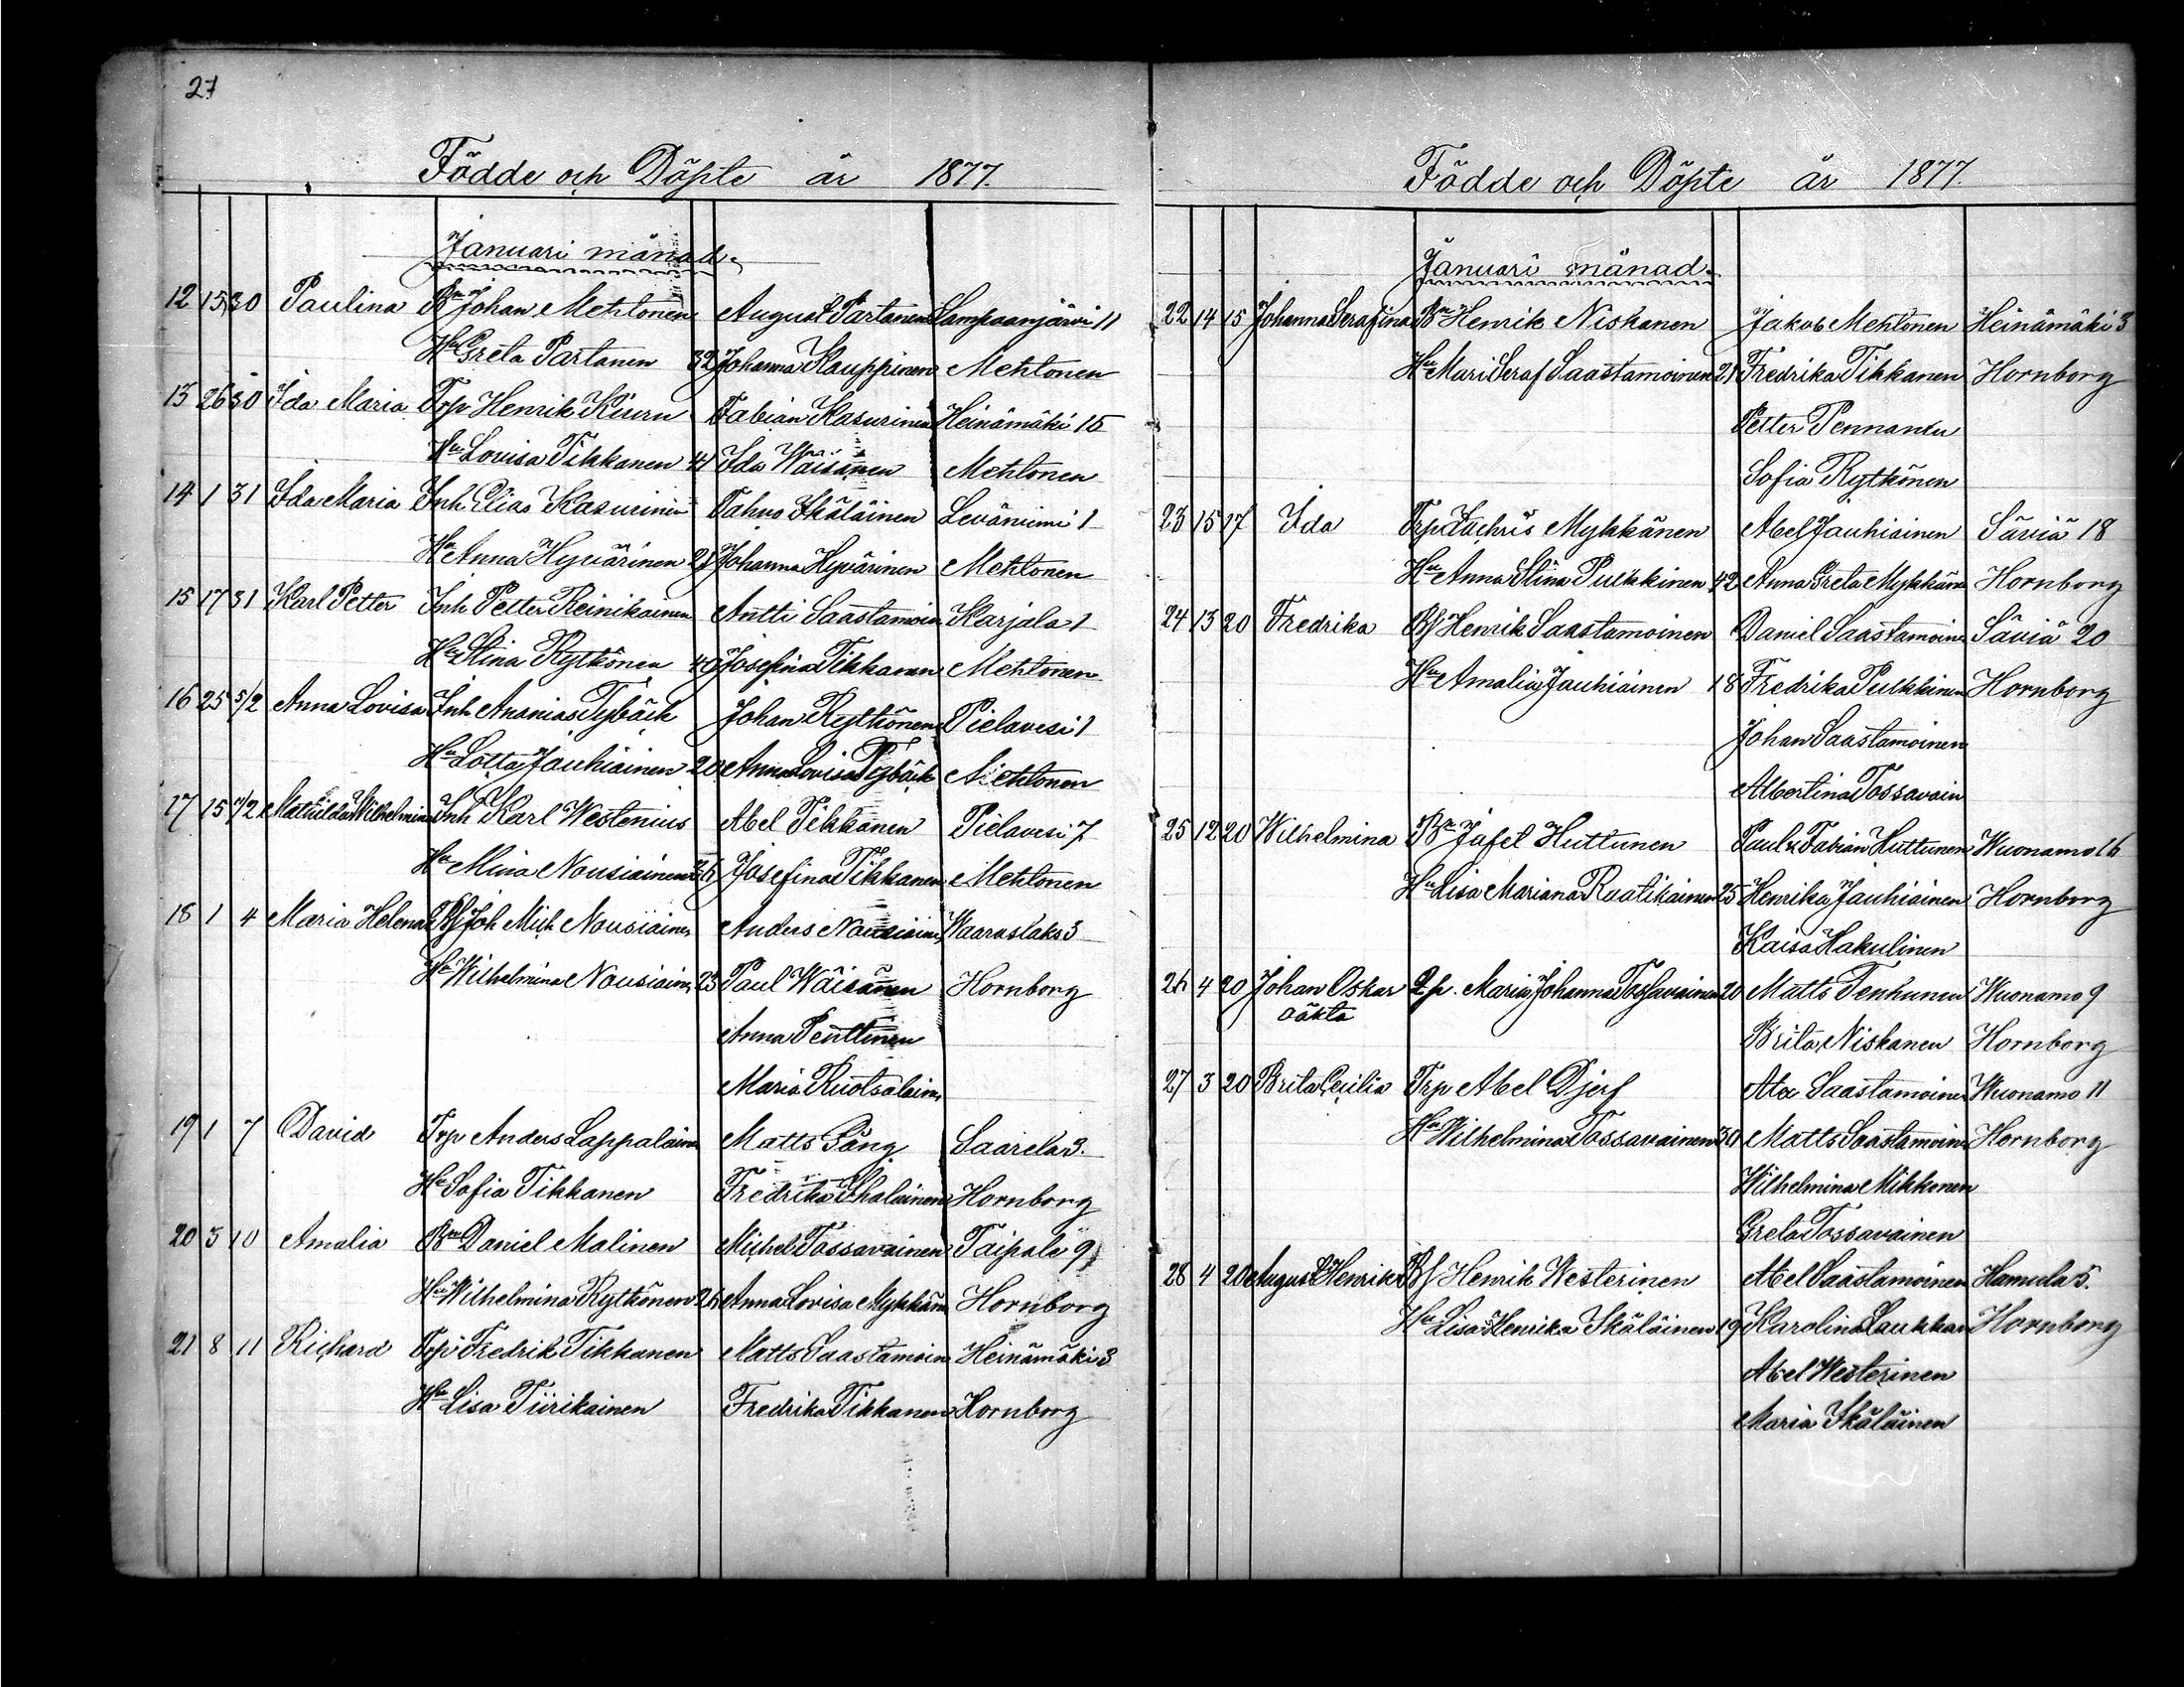 27
Födde och Döpte år 1877.
Januari månad.
12 15 30 Paulina Bn Johan Mehtonen August Partanen Lampaanjärvi 11
Hu Greta Partanen 32 Johanna Kauppinen Mehtonen
13 26 30 Ida Maria Trp Henrik Kiuru Fabian Kasurinen Heinämäki 15
Hu Lovisa Tikkanen 41 Ida Wäisänen Mehtonen
14 1 31 Ida Maria Inh Elias Kasurinen Tahvo Ikäläinen Leväniemi 1
Hu Anna Hyvärinen 27 Johanna Hyvärinen Mehtonen
15 17 31 Karl Petter Inh Petter Reinikainen Antti Saastamoin Karjala 1
Hu Stina Rytkönen 40 Josefina Tikkanen Mehtonen
16 25 5/2 Anna Lovisa Inh Ananias Tybäck Johan Rytkönen Pielavesi 1
Hu Lotta Jauhiainen 20 Anna Lovisa Tybäck Mehtonen
17 15 /2 Mathilda Wilhelmina Inh Karl Westenius Abel Tikkanen Pielavesi 7
Hu Mina Nousiainen 36 Josefina Tikkanen Mehtonen
18 1 4 Maria Helena Bs Joh Mich Nousiainen Anders Nousiainen Waaraslaks 3
Hu Wilhelmina Nousiain 23 Paul Wäisänen Hornborg
Anna Penttinen
Maria Ruotsalain
19 1 7 David Trp Anders Lappalainen Matts Pång Saarela 3.
Hu Sofia Tikkanen Fredrika Ikäläinen Hornborg
20 3 10 Amalia Bn Daniel Malinen Michel Tossavainen Taipale 9
Hu Wilhelmina Rytkönen 26 Anna Lovisa Mykkän Hornborg
21 8 11 Richard Trp Fredrik Tikkanen Matts Saastamoin Heinämäki 3
Hu Lisa Tiirikainen Fredrika Tikkanen Hornborg
Födde och Döpte år 1877.
Januari månad.
22 14 15 Johanna Serafina Bn Henrik Niskanen Jakob Mehtonen Heinämäki 3
Hu Mari Seraf Saastamoinen 21 Fredrika Tikkanen Hornborg
Petter Pennanen
Sofia Rytkönen
23 15 17 Ida Trp Zachris Mykkänen Abel Jauhiainen Säviä 18
Hu Anna Stina Pulkkinen 42 Anna Greta Mykkän Hornborg
24 13 20 Fredrika Bs Henrik Saastamoinen Daniel Saastamoin Säviä 20
Hu Amalia Jauhiainen 18 Fredrika Pulkkinen Hornborg
Johan Saastamoinen
Albertina Tossavain
25 12 20 Wilhelmina Bn Jafet Huttunen Paul & Fabian Huttunen Wuonamo 16
Hu Lisa Mariana Raatikainen 25 Henrika Jauhiainen Hornborg
Kaisa Hakulinen
26 4 20 Johan Oskar Qp. Maria Johanna Tossavainen 20 Matts Tenhunen Wuonamo 9
oäkta Brita Niskanen Hornborg
27 3 20 Brita Cecilia Trp Abel Djerf Alex Saastamoinen Wuonamo 11
Hu Wilhelmina Tossavainen 30 Matts Saastamoin Hornborg
Wilhelmina Mikkonen
Greta Tossavainen
28 4 20 August Henrik Bs Henrik Westerinen Abel Saastamoinen Hamula 5.
Hu Lisa Henrika Ikäläinen 19 Karolina Laukkan Hornborg
Abel Westerinen
Maria Ikäläinen